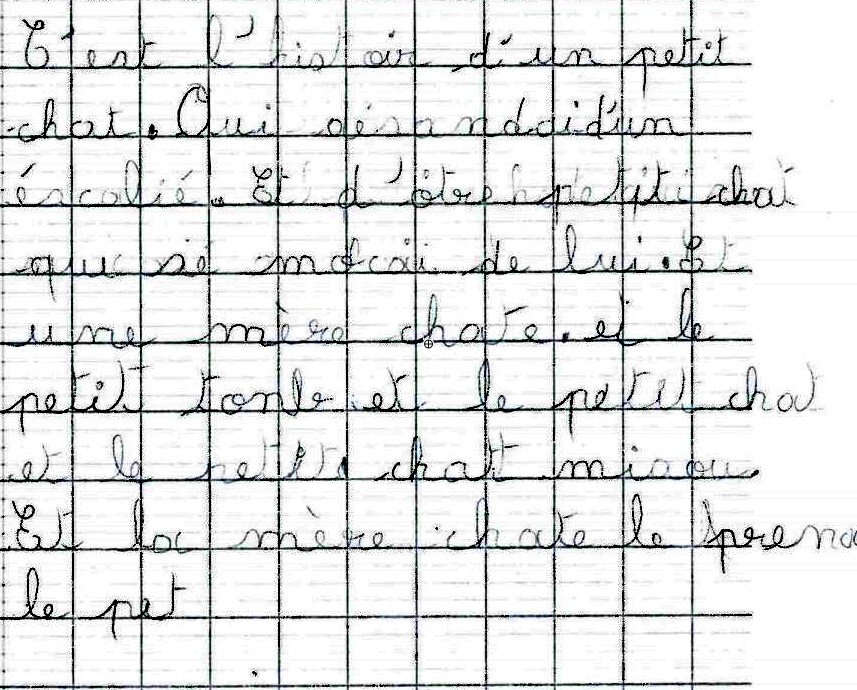 C'est l'histoir d'un petit
chat. Qui désanddaid'un
éscalié. Et d'ôtre petit chat
qui sé mocai de lui. Et
une mère chate. et le
petit tonbe et le petit chat
et le petit chat miaou.
Et la mère chate le prend
le pet